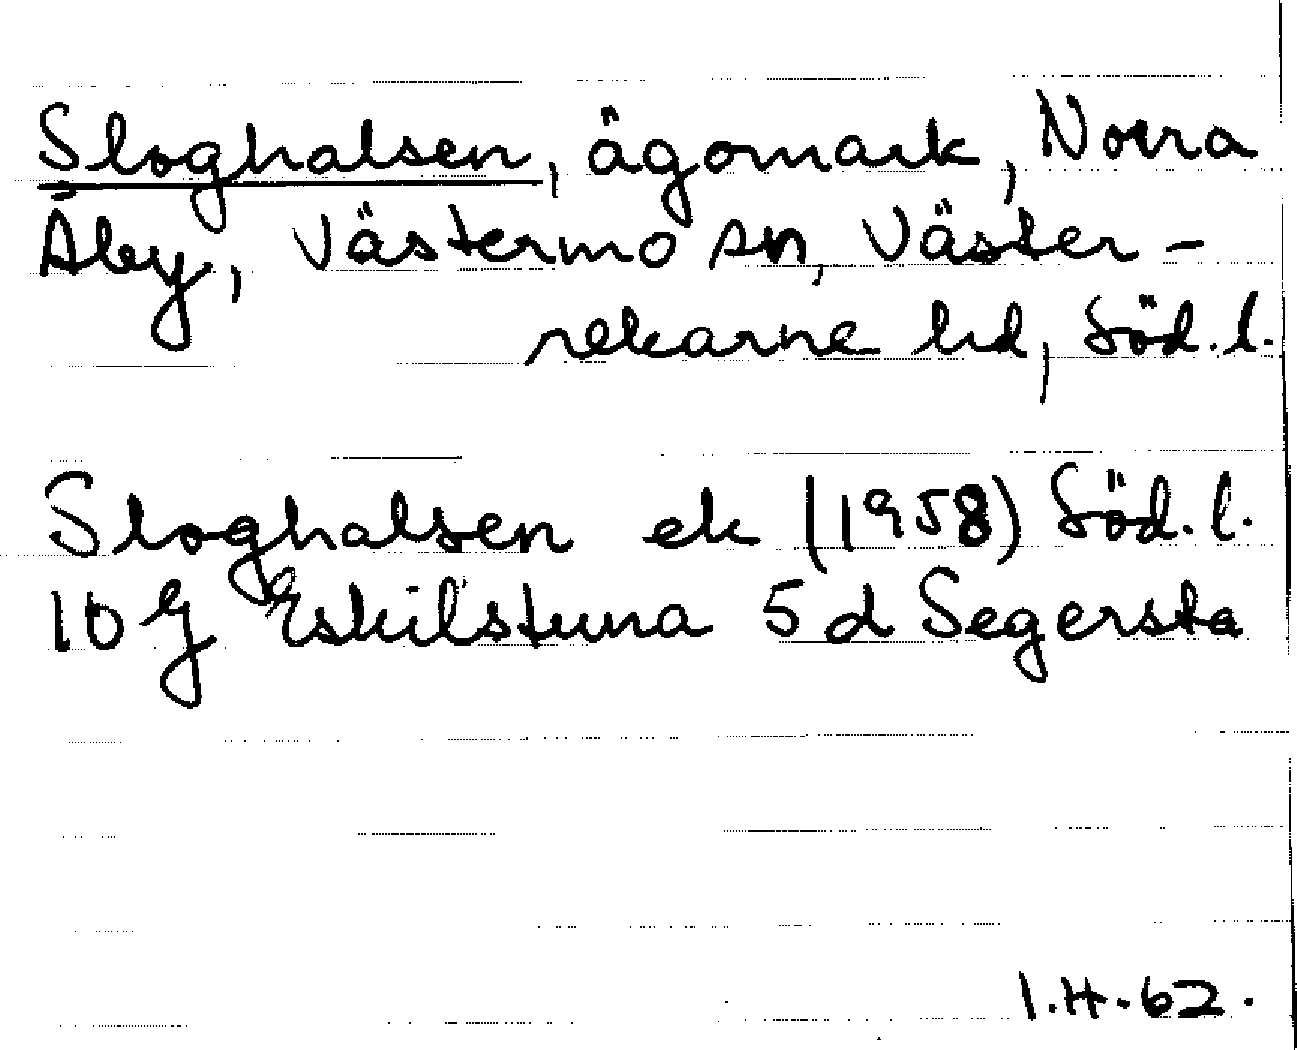 Sloghalsen, ägomark, Norra
Åby, Västermo sn, Väster-
rekarne hd, Söd. l.
Sloghalsen ek (1958) Söd. l.
10 G Eskilstuna 5 d Segersta
I.H. 62.